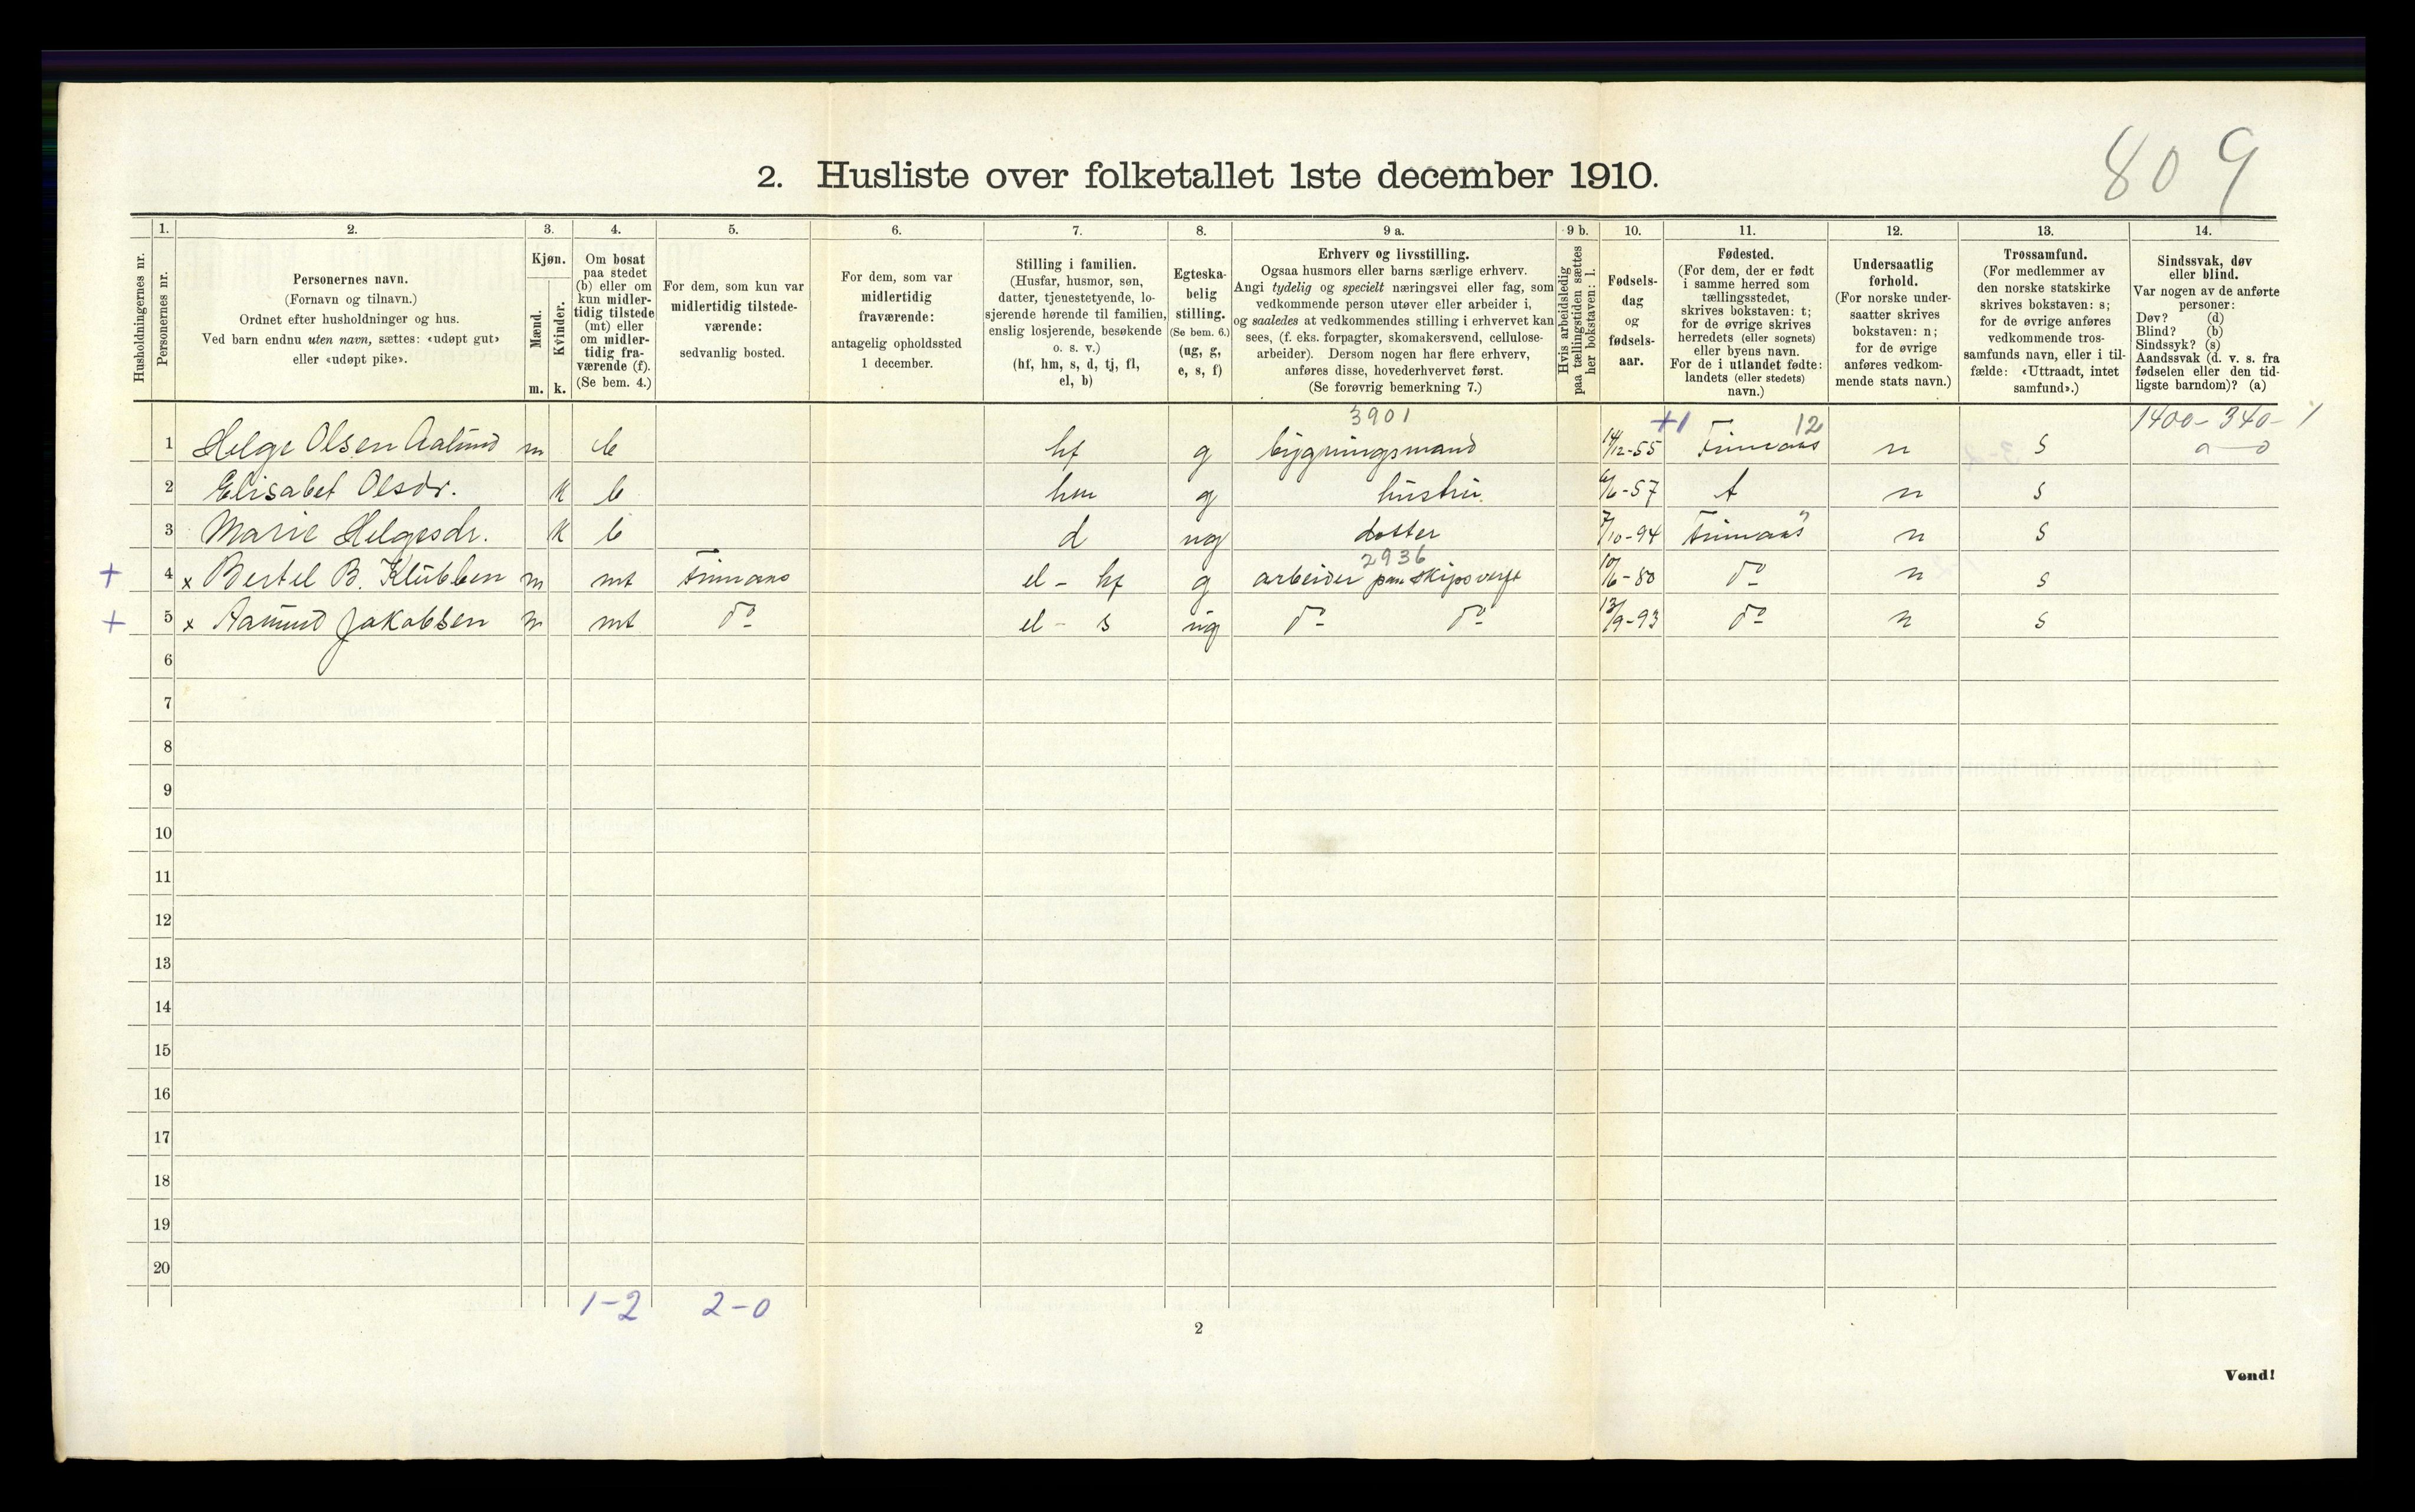 809
2. Husliste over folketallet 1ste december 1910.
Husholdningernes nr.
1.
Personernes nr.
2.
Personernes navn.
(Fornavn og tilnavn.)
Ordnet efter husholdninger og hus.
Ved barn endnu uten navn, sættes: «udøpt gut»
eller «udøpt pike».
3.
Kjøn.
Mænd.
Kvinder.
m. k.
4.
Om bosat
paa stedet
(b) eller om
kun midler-
tidig tilstede
(mt) eller
om midler-
tidig fra-
værende (f).
(Se bem. 4.)
5.
For dem, som kun var
midlertidig tilstede-
værende:
sedvanlig bosted.
6.
For dem, som var
midlertidig
fraværende:
antagelig opholdssted
1 december.
7.
Stilling i familien.
(Husfar, husmor, søn,
datter, tjenestetyende, lo-
sjerende hørende til familien,
enslig losjerende, besøkende
o. s. v.)
(hf, hm, s, d, tj, fl,
el, b)
8.
Egteska-
belig
stilling.
(Se bem. 6.)
(ug, g,
e, s, f)
9 a.
Erhverv og livsstilling.
Ogsaa husmors eller barns særlige erhverv.
Angi tydelig og specielt næringsvei eller fag, som
vedkommende person utøver eller arbeider i,
og saaledes at vedkommendes stilling i erhvervet kan
sees, (f. eks. forpagter, skomakersvend, cellulose-
arbeider). Dersom nogen har flere erhverv,
anføres disse, hovederhvervet først.
(Se forøvrig bemerkning 7.)
9 b.
Hvis arbeidsledig
paa tællingstiden sættes
her bokstaven: l.
10.
Fødsels-
dag
og
fødsels-
aar.
11.
Fødested.
(For dem, der er født
i samme herred som
tællingsstedet,
skrives bokstaven: t;
for de øvrige skrives
herredets (eller sognets)
eller byens navn.
For de i utlandet fødte:
landets (eller stedets)
navn.)
12.
Undersaatlig
forhold.
(For norske under-
saatter skrives
bokstaven: n;
for de øvrige
anføres vedkom-
mende stats navn.)
13.
Trossamfund.
(For medlemmer av
den norske statskirke
skrives bokstaven: s;
for de øvrige anføres
vedkommende tros-
samfunds navn, eller i til-
fælde: «Uttraadt, intet
samfund».)
14.
Sindssvak, døv
eller blind.
Var nogen av de anførte
personer:
Døv? (d)
Blind? (b)
Sindssyk? (s)
Aandssvak (d. v. s. fra
fødselen eller den tid-
ligste barndom)? (a)
3901 +1 12 1400-340-1
1 Helge Olsen Aalund m b hf g bygningsmand 14/12-55 Finnaas n s a-0
2 Elisabet Olsdr. k b hm g hustru 6/6-57 t n s
3 Marie Helgesdr. k b d ug dotter 7/10-94 Finnaas n s
2936
+ 4 x Bertel B. Klubben m mt Finnaas el - hf g arbeider paa skipsverft 10/6-80 do n s
+ 5 x Aamund Jakobsen m mt do el - s ug do do 13/9-93 do n s
6
7
8
9
10
11
12
13
14
15
16
17
18
19
20
1-2 2-0
2
Vend!